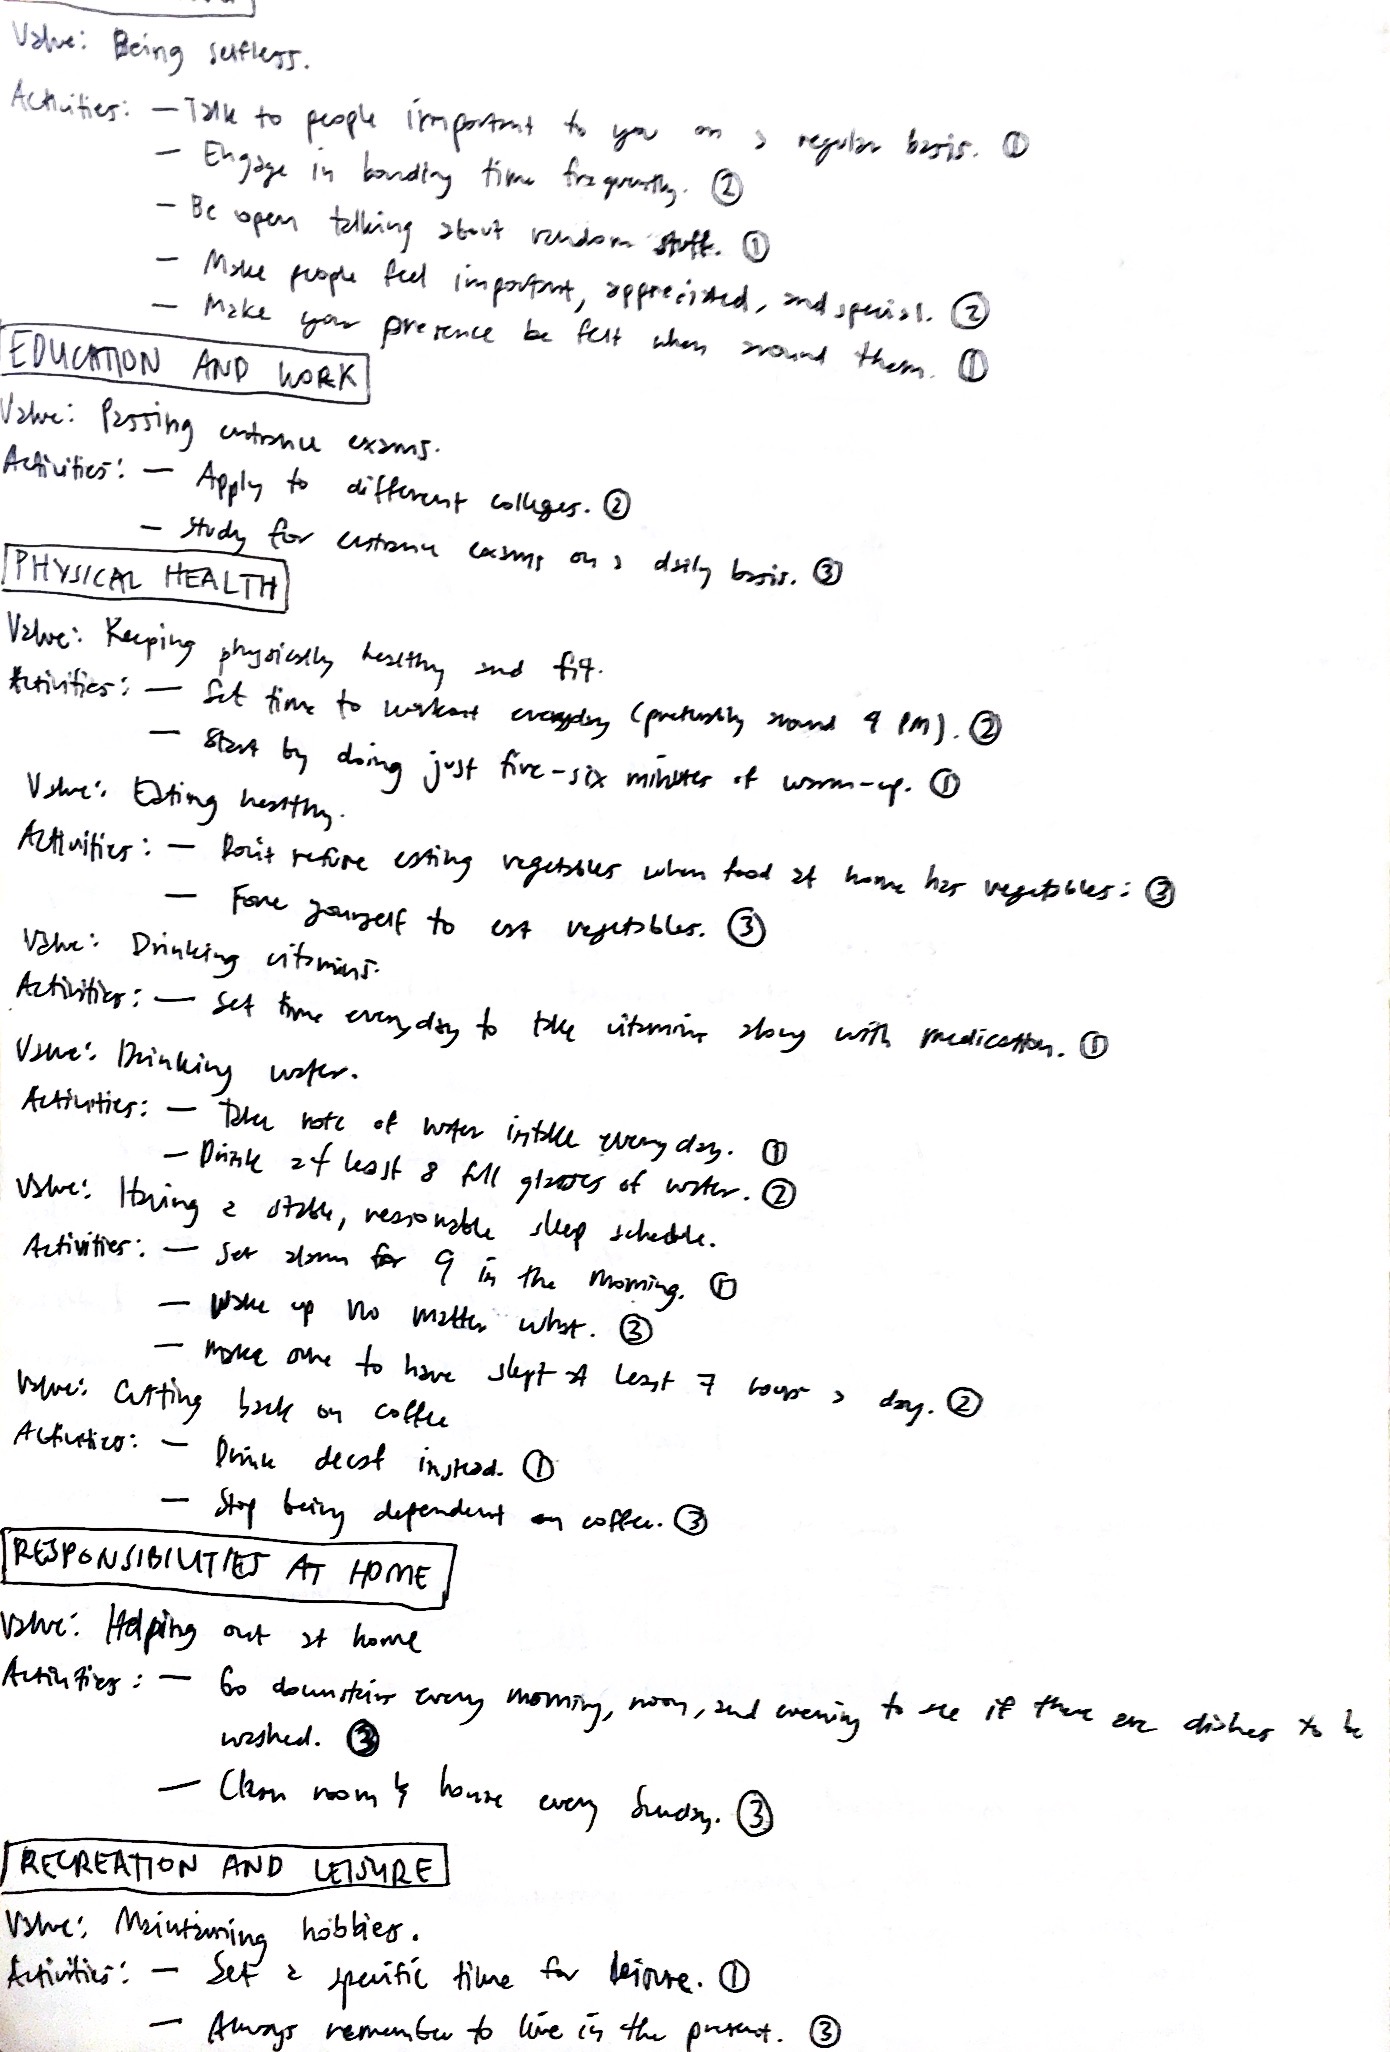 Value: Being selfless.
Activities: — Talk to people important to you on a regular basis. ①
— Engage in bonding time frequently. ②
— Be open talking about random stuff. ①
— Make people feel important, appreciated, and special. ②
— Make your presence be felt when around them. ①
EDUCATION AND WORK
Value: Passing entrance exams.
Activities: — Apply to different colleges. ②
— Study for entrance exams on a daily basis. ③
PHYSICAL HEALTH
Value: Keeping physically healthy and fit.
Activities: — Set time to workout everyday (preferably around 4 PM). ②
— Start by doing just five-six minutes of warm-up. ①
Value: Eating healthy.
Activities: — Don't refuse eating vegetables when food at home has vegetables: ③
— Force yourself to eat vegetables. ③
Value: Drinking vitamins.
Activities: — Set time everyday to take vitamins along with medication. ①
Value: Drinking water.
Activities: — Take note of water intake everyday. ①
— Drink at least 8 full glasses of water. ②
Value: Having a stable, reasonable sleep schedule.
Activities: — Set alarm for 9 in the morning. ①
— Wake up no matter what. ③
— Make sure to have slept at least 7 hours a day. ②
Value: Cutting back on coffee
Activities: — Drink decaf instead. ①
— Stop being dependent on coffee. ③
RESPONSIBILITIES AT HOME
Value: Helping out at home
Activities: — Go downstairs every morning, noon, and evening to see if there are dishes to be
washed. ③
— Clean room & house every Sunday. ③
RECREATION AND LEISURE
Value: Maintaining hobbies.
Activities: — Set a specific time for leisure. ①
— Always remember to live in the present. ③